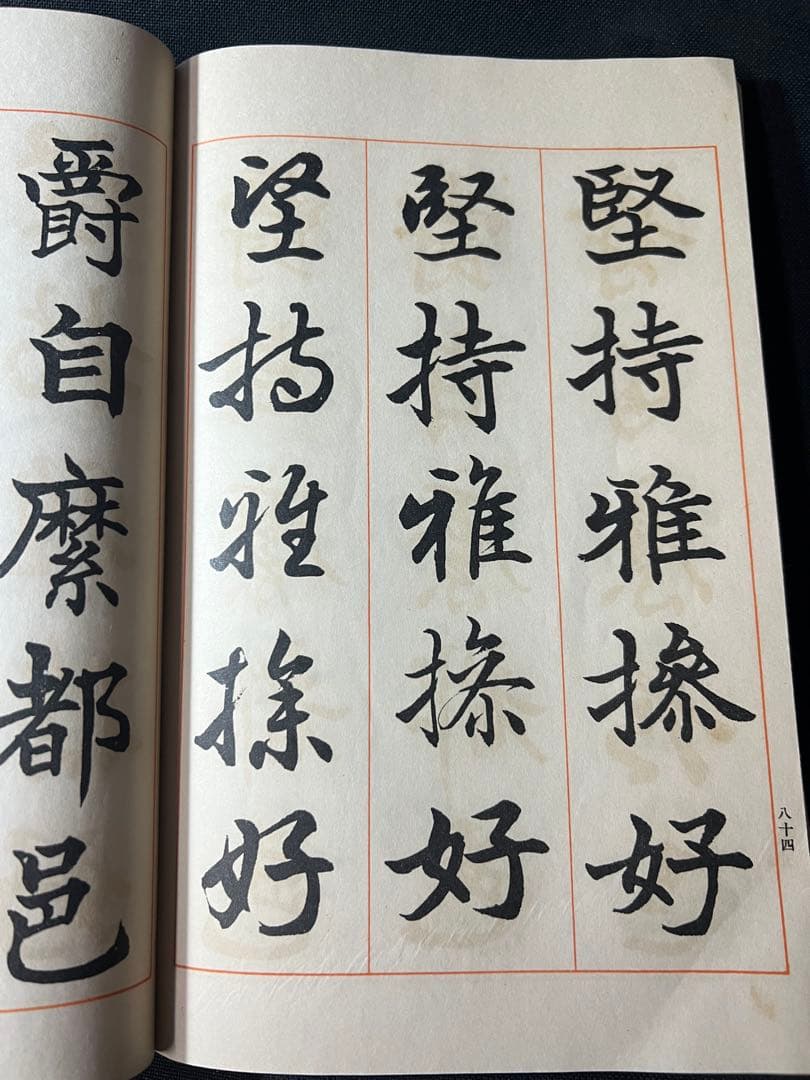 堅持雅操好
堅持雅操好
堅持雅操好
八十四
爵自縻都邑